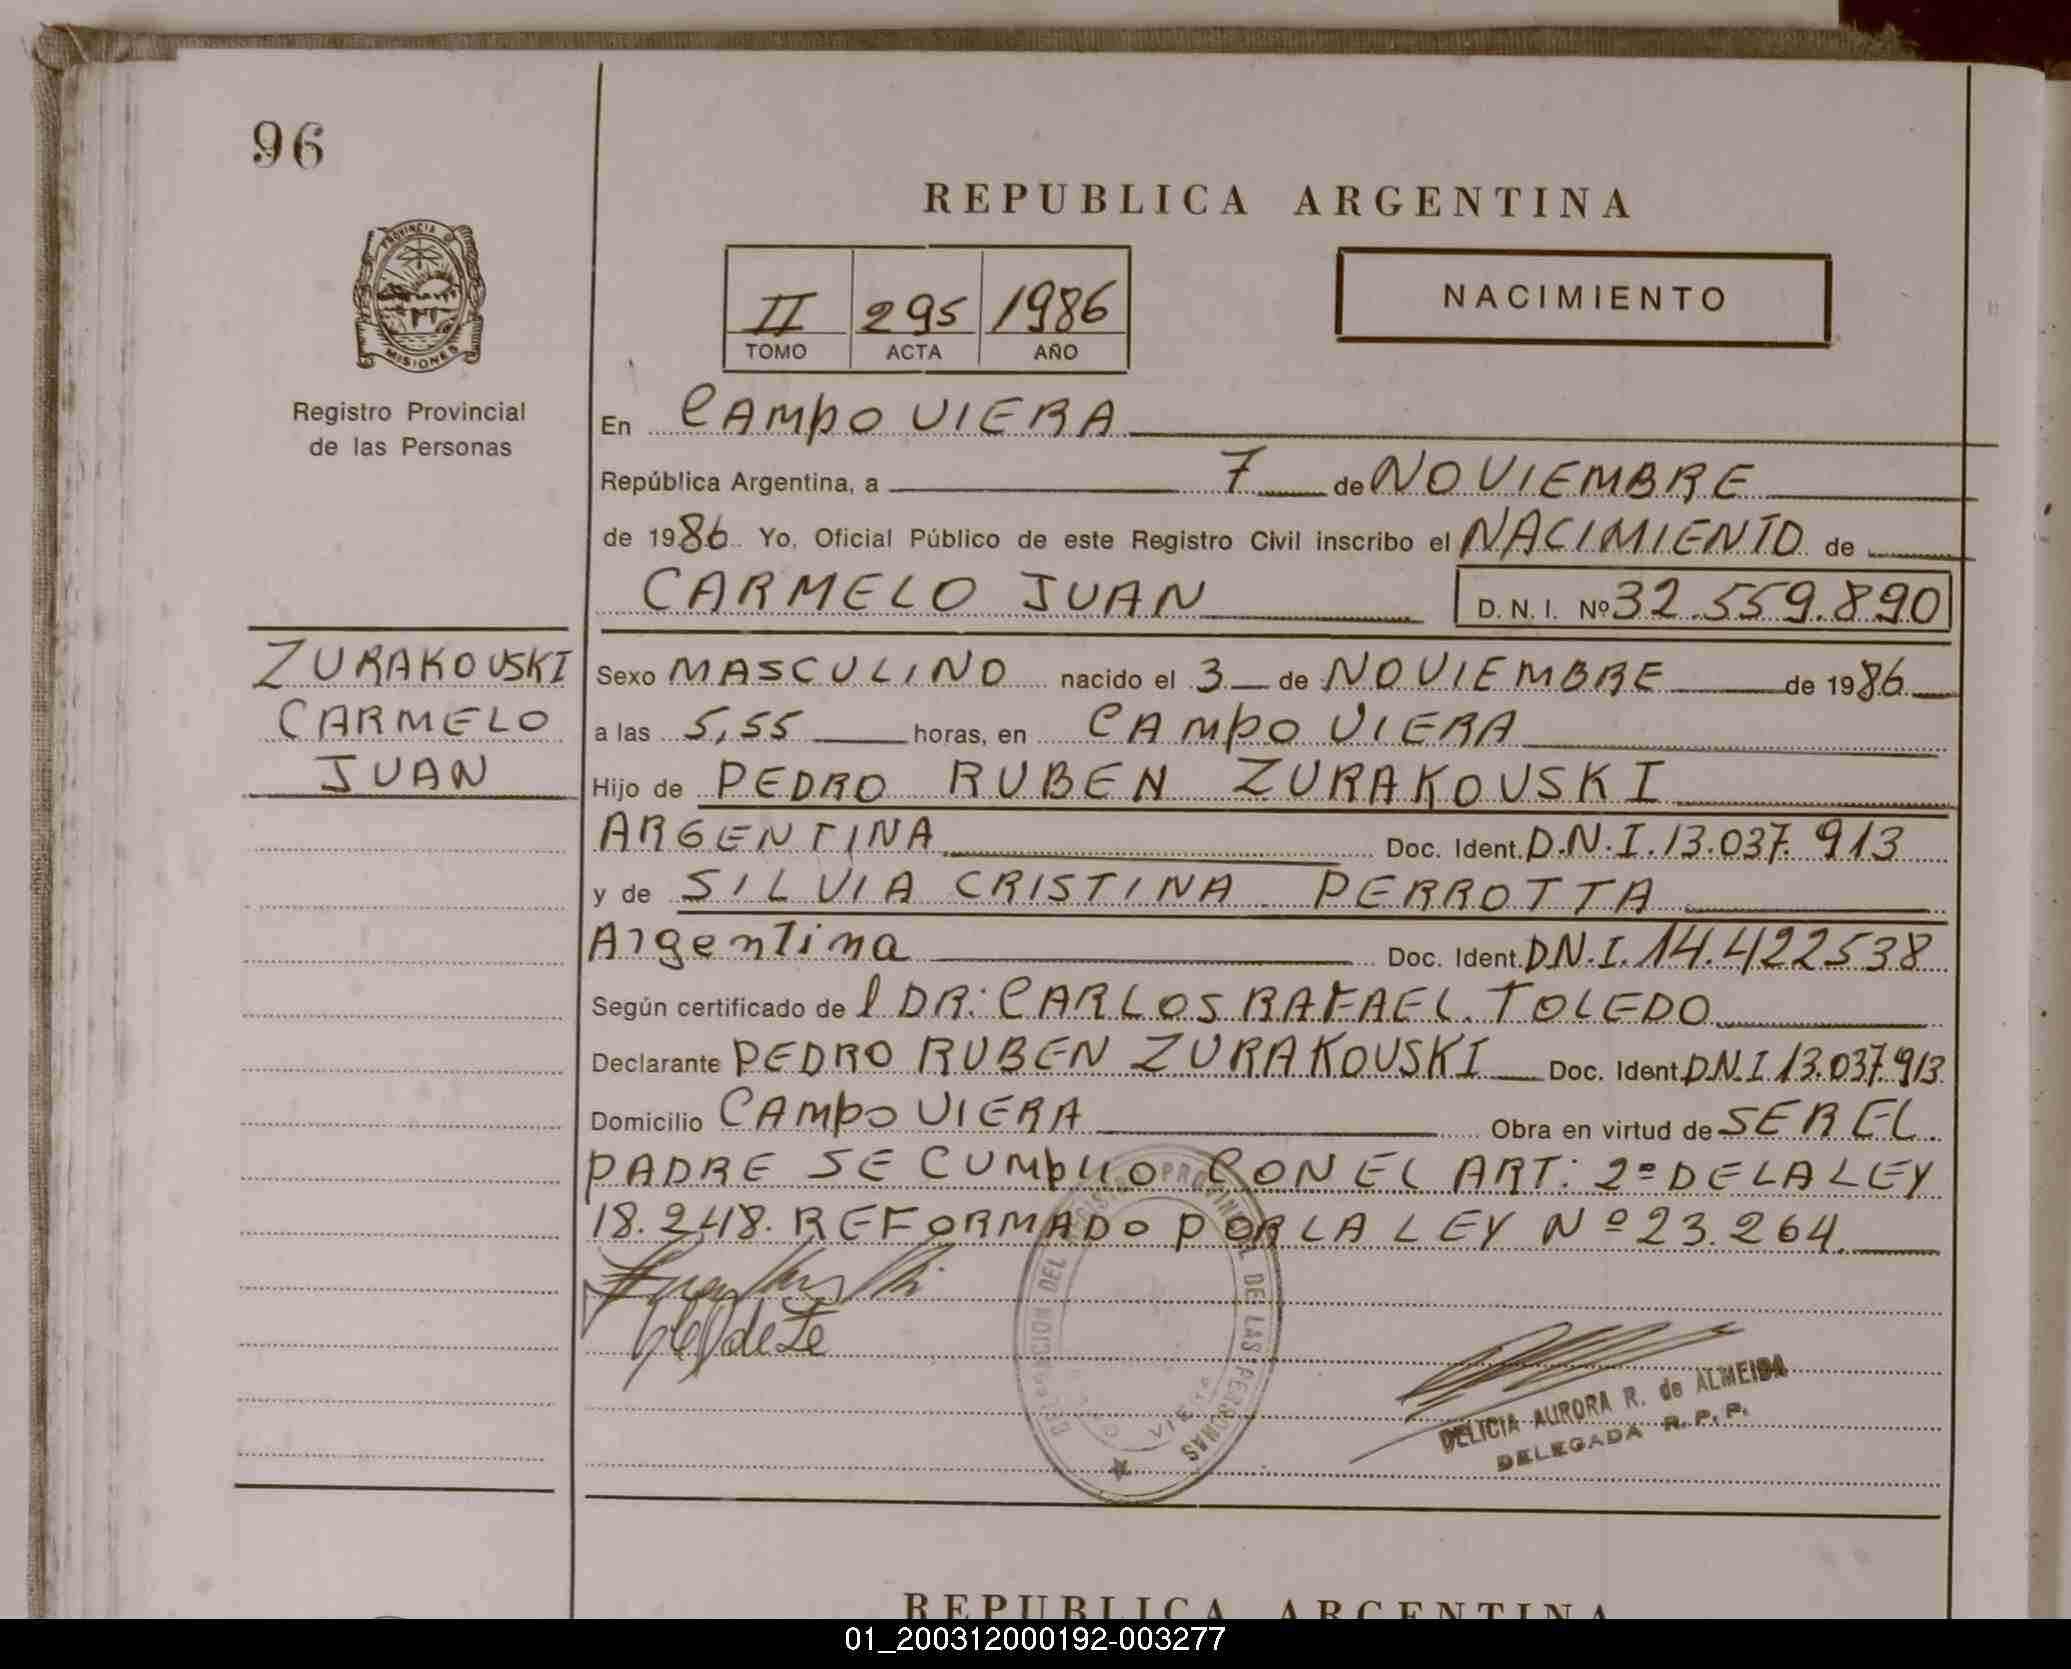 96
REPUBLICA ARGENTINA
PROVINCIA D
MISIONES
Registro Provincial
de las Personas
II 295 1986
TOMO ACTA AÑO
NACIMIENTO
En CAMPO VIERA
República Argentina, a 7 de NOVIEMBRE
de 1986 Yo, Oficial Público de este Registro Civil inscribo el NACIMIENTO de
CARMELO JUAN D. N. I. Nº 32.559.890
ZURAKOVSKI
CARMELO
JUAN
Sexo MASCULINO nacido el 3 de NOVIEMBRE de 1986
a las 5,55 horas, en CAMPO VIERA
Hijo de PEDRO RUBEN ZURAKOVSKI
ARGENTINA Doc. Ident. D.N.I. 13.037.913
y de SILVIA CRISTINA PERROTTA
Argentina Doc. Ident. D.N.I. 14.422538
Según certificado de l DR: CARLOS RAFAEL. TOLEDO
Declarante PEDRO RUBEN ZURAKOVSKI Doc. Ident. D.N.I 13.037.913
Domicilio CAMPO VIERA Obra en virtud de SER EL
PADRE SE CUMPLIO CON EL ART: 2º DE LA LEY
18.248. REFORMADO POR LA LEY Nº 23.264.
DELEGACION DEL REGISTRO PROVINCIAL DE LAS PERSONAS
VIERA
DELICIA AURORA R. de ALMEIDA
DELEGADA R. P. P.
REPUBLICA ARGENTINA
01_200312000192-003277